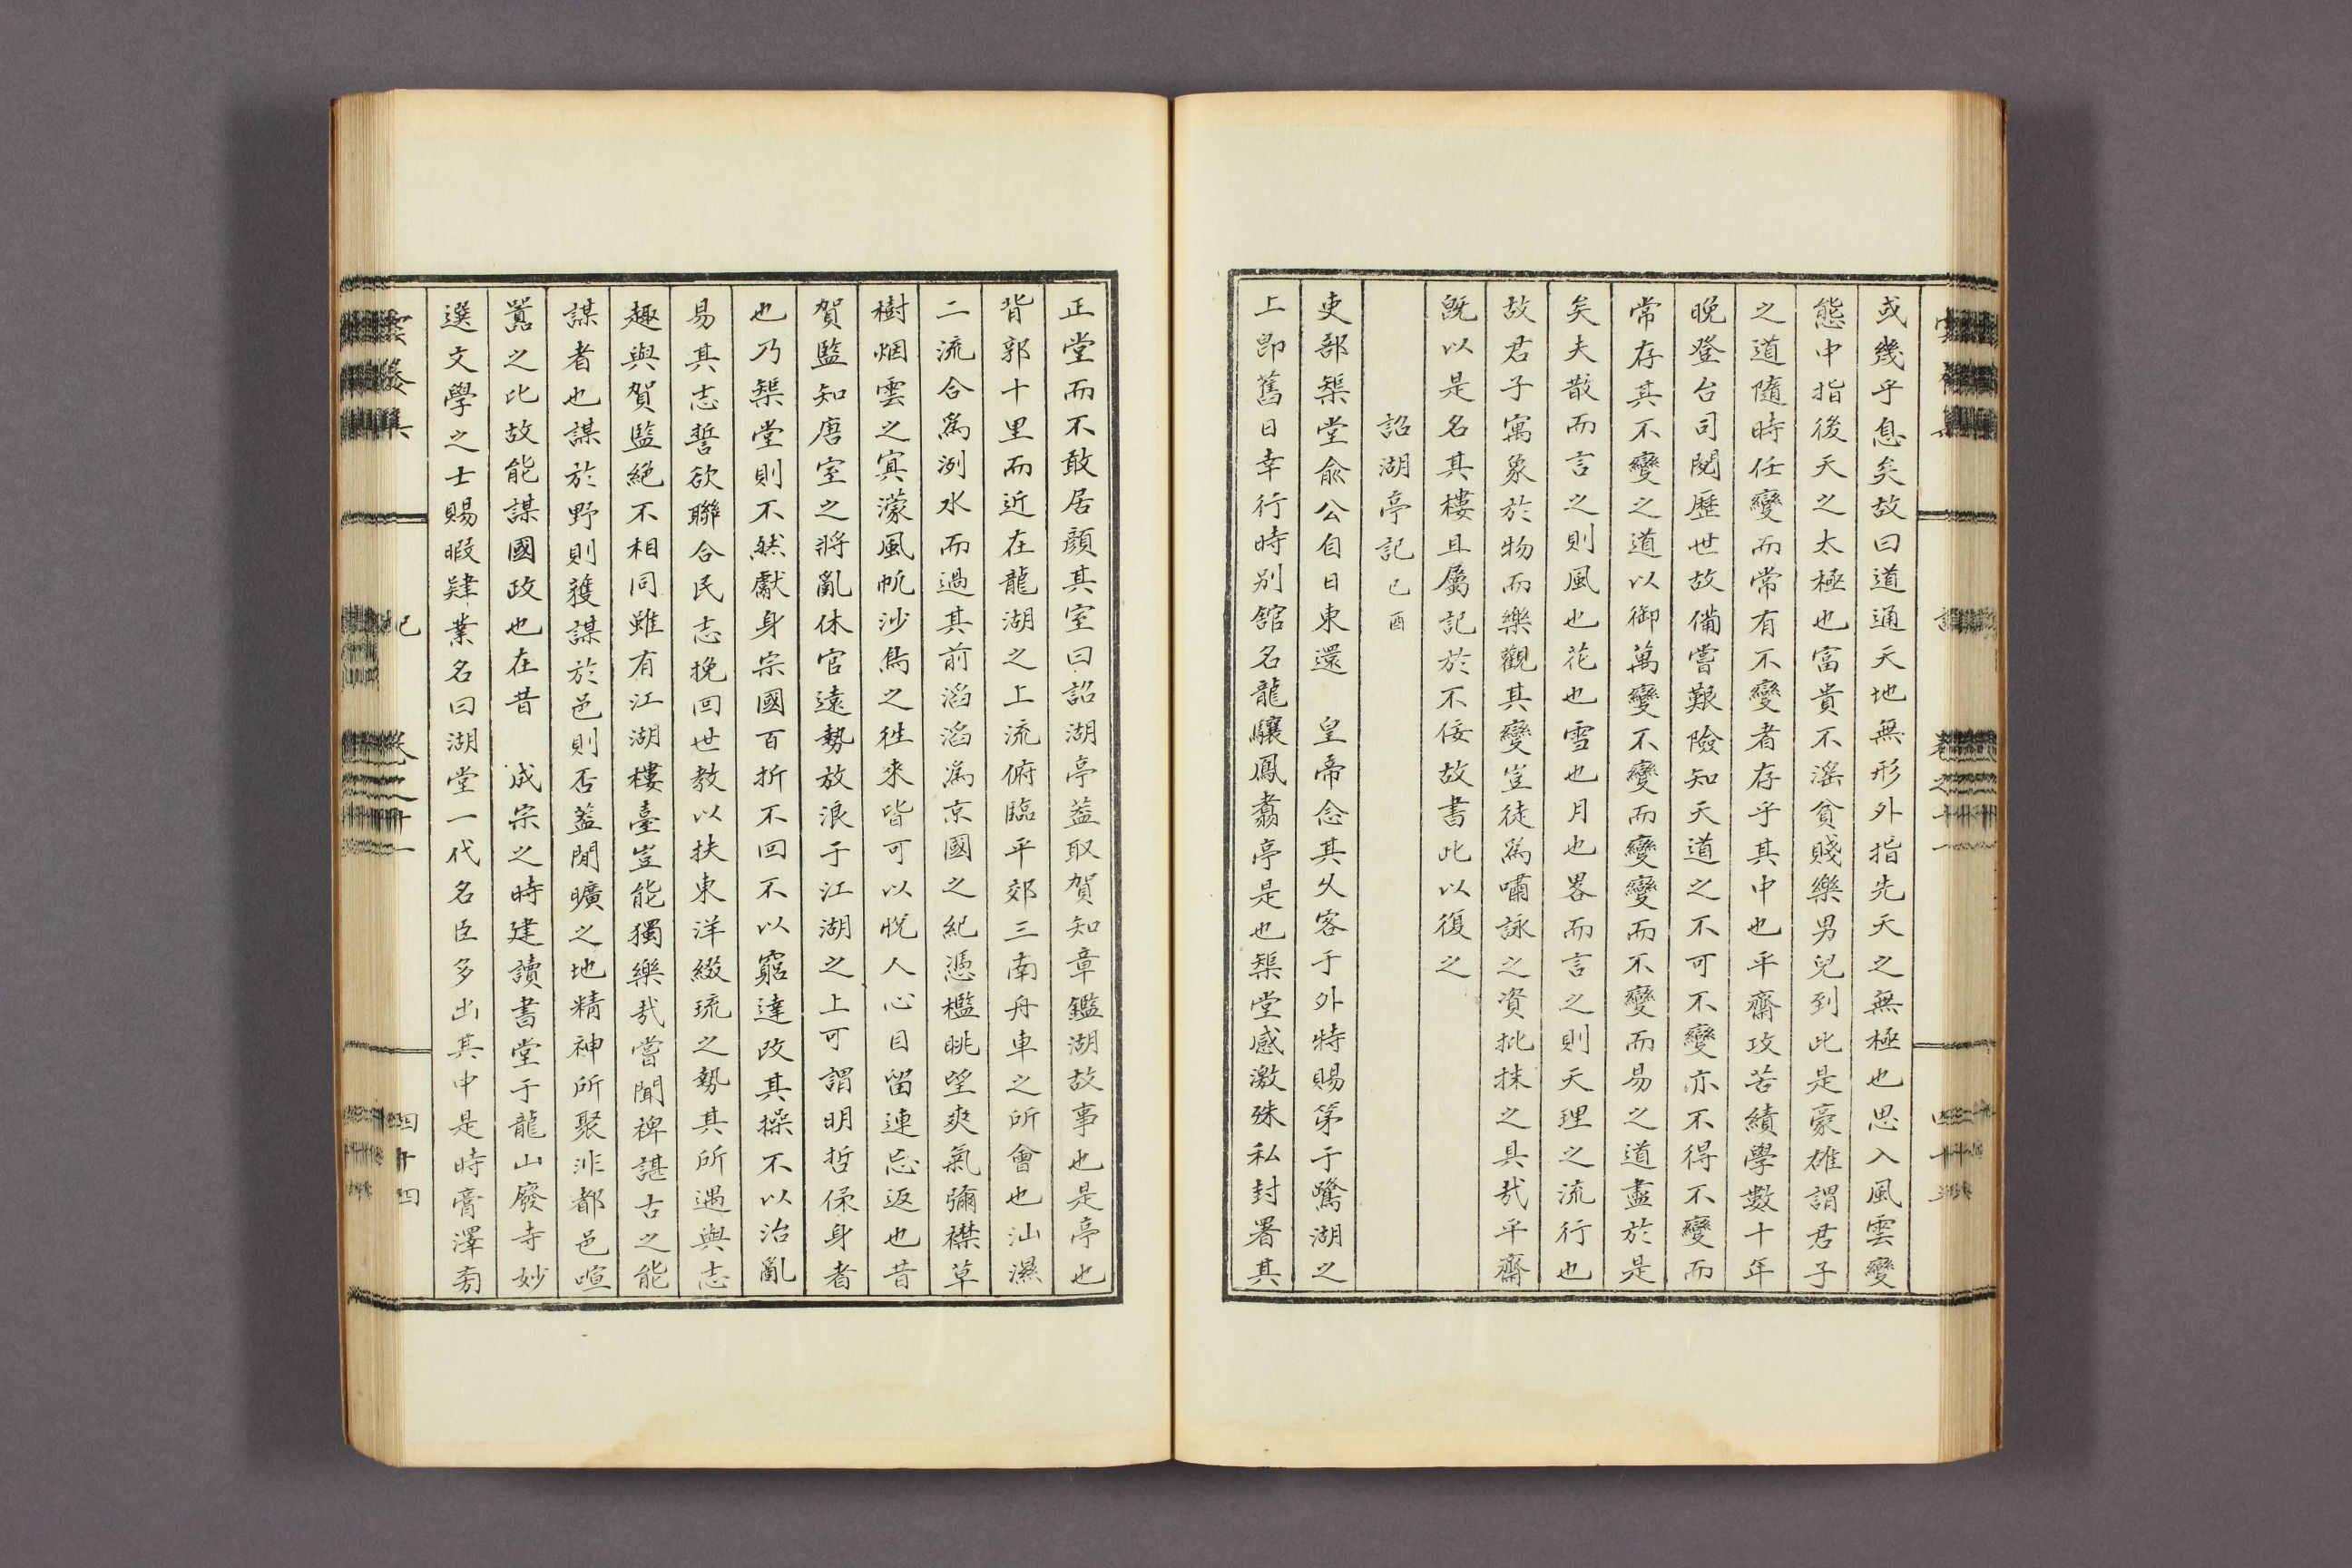 或幾乎息矣故曰道通天地無形外指先天之無極也思入風雲變
態中指後天之太極也富貴不滛貧賤樂男兒到此是豪雄謂君子
之道隨時任變而常有不變者存乎其中也平齋攻苦績學數十年
晚登台司閱歷世故備嘗艱險知天道之不可不變亦不得不變而
常存其不變之道以御萬變不變而變變而不變而易之道盡於是
矣夫散而言之則風也花也雪也月也畧而言之則天理之流行也
故君子寓象於物而樂觀其變豈徒爲嘯詠之資批抹之具哉平齋
旣以是名其樓且屬記於不佞故書此以復之
詔湖亭記 己酉
吏部榘堂兪公自日東還 皇帝念其久客于外特賜第于鷺湖之
上卽舊日幸行時別舘名龍驤鳳翥亭是也榘堂感激殊私封署其
正堂而不敢居顔其室曰詔湖亭蓋取賀知章鑑湖故事也是亭也
背郭十里而近在龍湖之上流俯臨平郊三南舟車之所會也汕濕
二流合爲洌水而過其前滔滔爲京國之紀憑檻眺望爽氣彌襟草
樹烟雲之冥濛風帆沙鳥之徃來皆可以悅人心目留連忘返也昔
賀監知唐室之將亂休官遠勢放浪于江湖之上可謂明哲保身者
也乃榘堂則不然獻身宗國百折不回不以窮達改其操不以治亂
易其志誓欲聯合民志挽回世教以扶東洋綴琉之勢其所遇與志
趣與賀監絶不相同雖有江湖樓臺豈能獨樂哉嘗聞裨諶古之能
謀者也謀於野則獲謀於邑則否蓋閒曠之地精神所聚非都邑喧
囂之比故能謀國政也在昔 成宗之時建讀書堂于龍山廢寺妙
選文學之士賜暇肄業名曰湖堂一代名臣多出其中是時膏澤旁
記 卷之十一 四十四